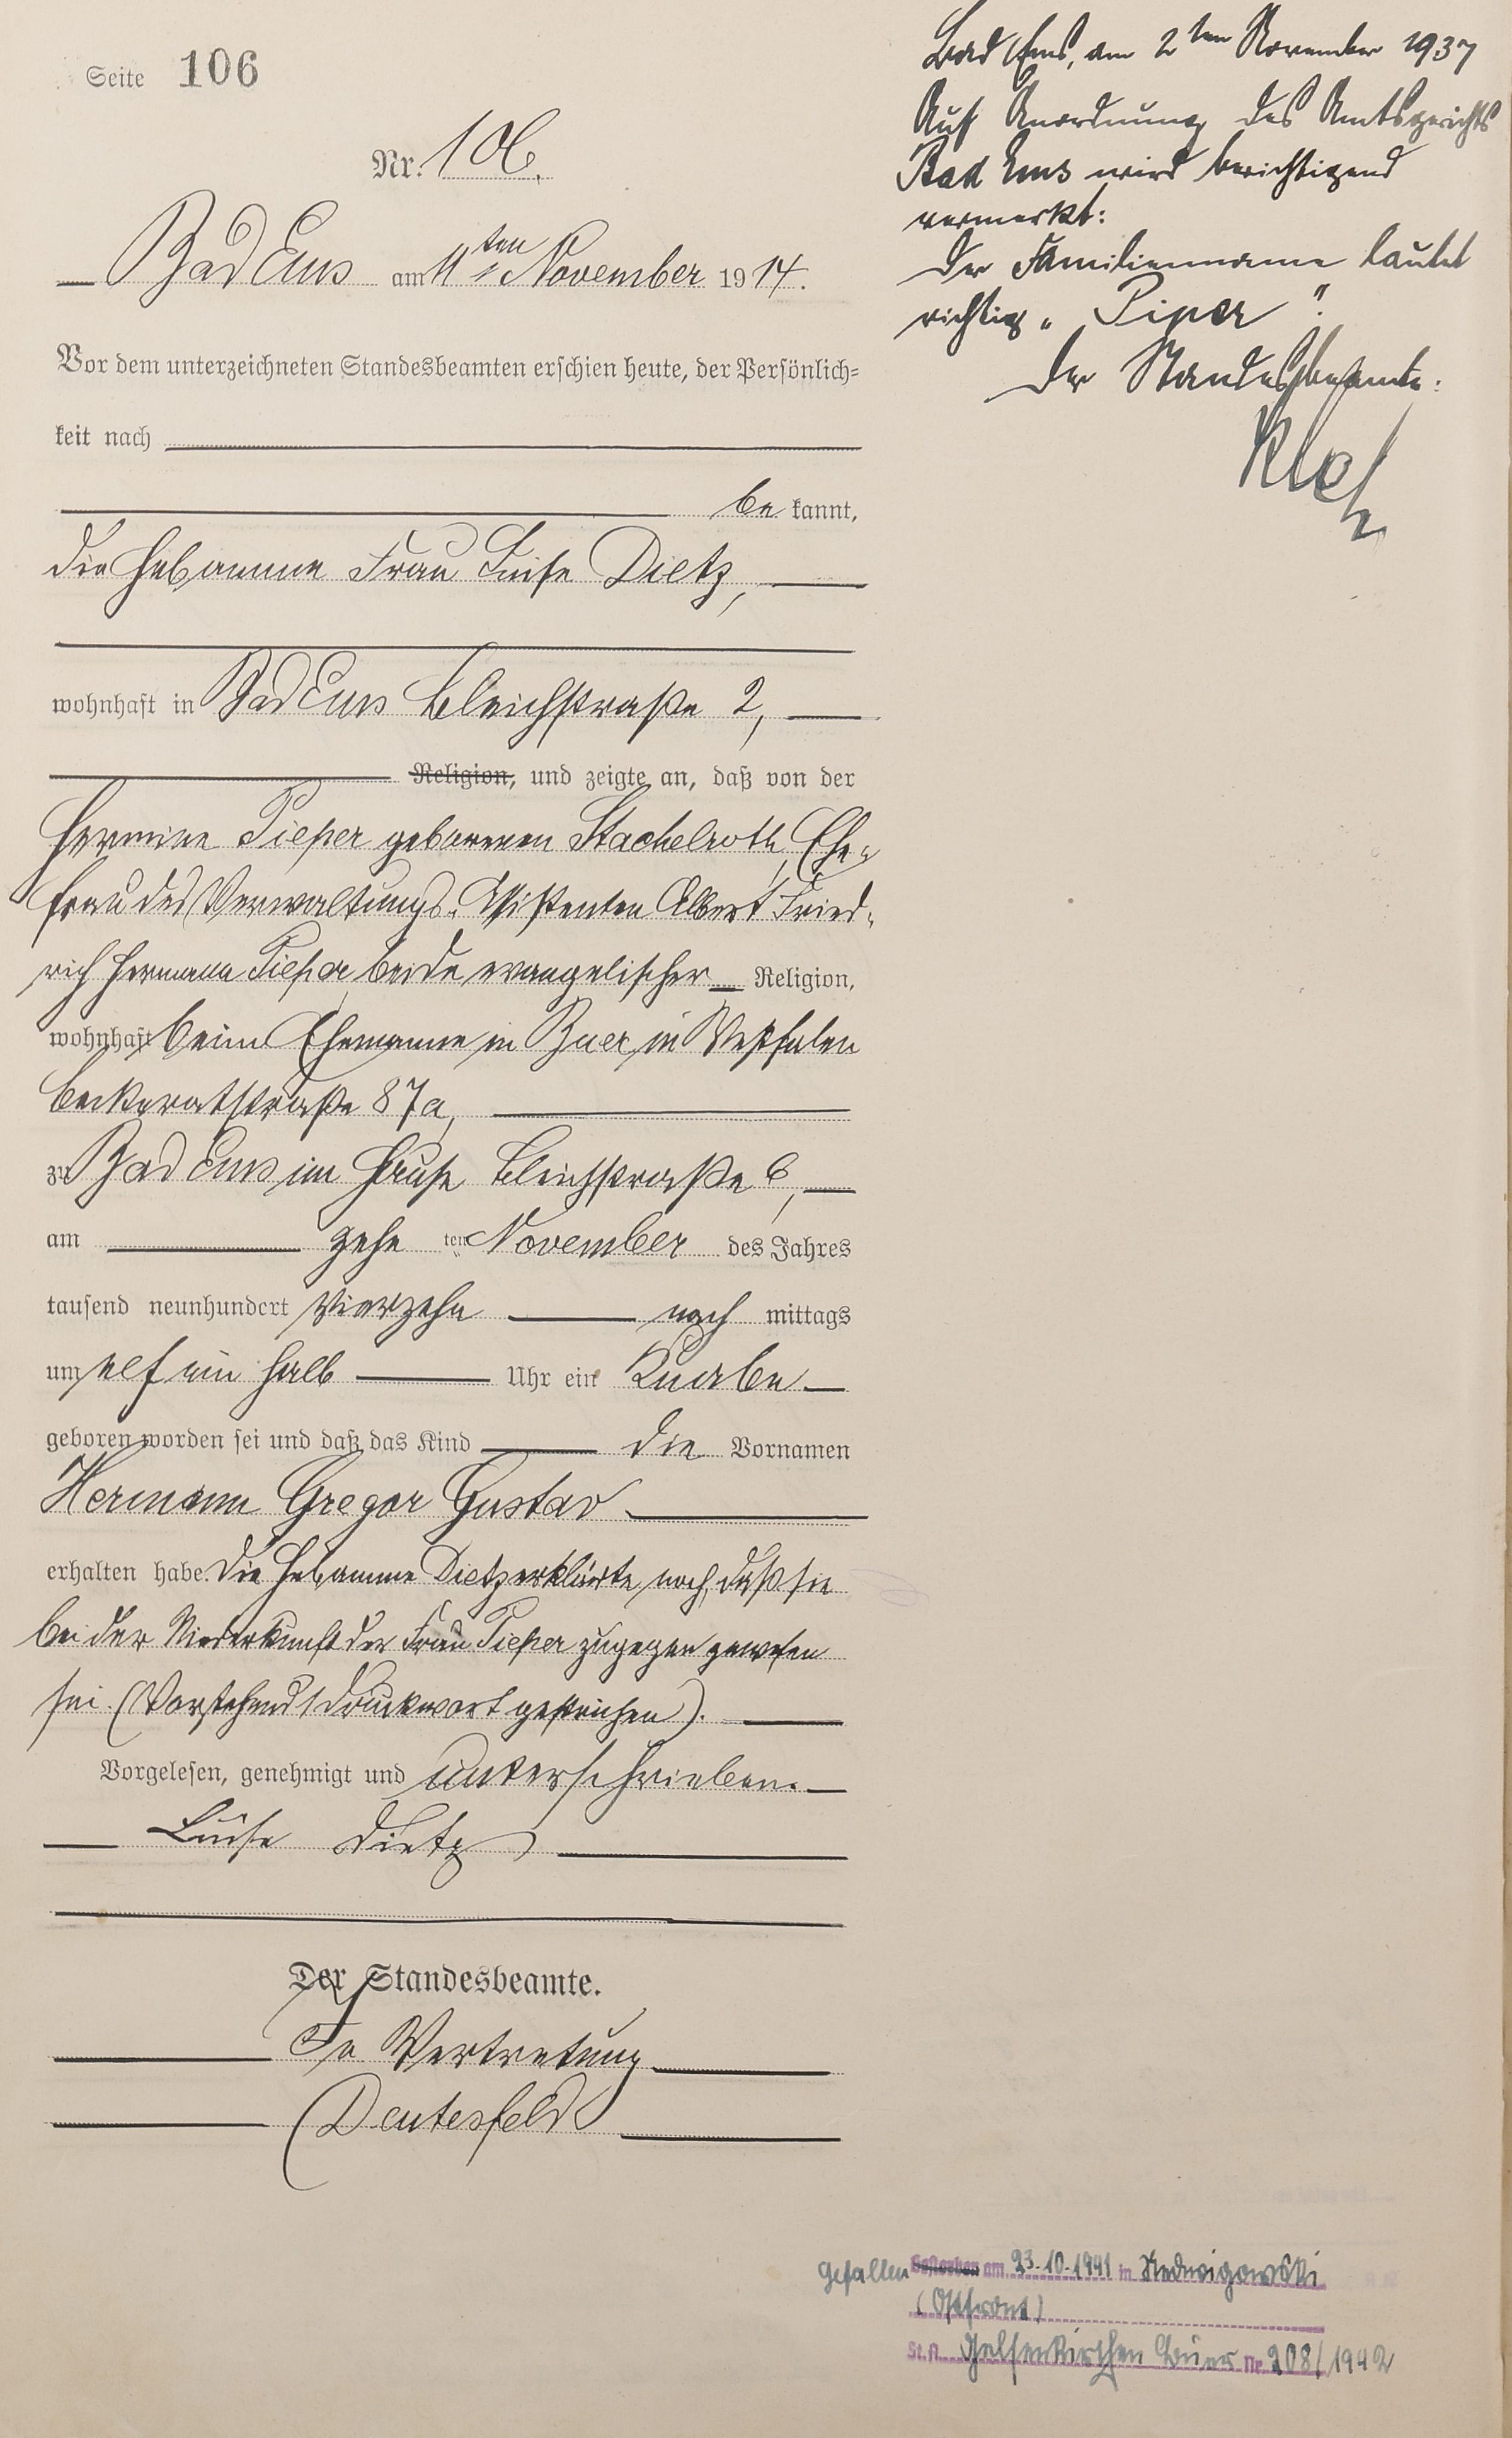 Seite 106
Nr. 106.
Bad Ems am 11ten November 1914.
Vor dem unterzeichneten Standesbeamten erschien heute, der Persönlich=
keit nach
be kannt,
die Hebamme Frau Luise Dietz,
wohnhaft in Bad Ems Bleichstraße 2,
Religion, und zeigte an, daß von der
Hermine Pieper geborenen Stachelroth, Ehe=
frau des Verwaltungs-Assistenten Albert Fried=
rich Hermann Pieper, beide evangelischer Religion,
wohnhaft beim Ehemanne in Buer in Westfalen
Beckeratstraße 87a,
zu Bad Ems im Hause Bleichstraße 6,
am zehn ten November des Jahres
tausend neunhundert vierzehn nach mittags
um elf ein halb Uhr ein Knabe
geboren worden sei und daß das Kind die Vornamen
Hermann Gregor Gustav
erhalten habe. Die Hebamme Dietz erklärte noch, daß sie
bei der Niederkunft der Frau Pieper zugegen gewesen
sei. (Vorstehend 1 Druckwort gestrichen).
Vorgelesen, genehmigt und unterschrieben.
Luise Dietz
Der Standesbeamte.
In Vertretung
Deutesfeld
Bad Ems, am 2ten November 1937
Auf Anordnung des Amtsgerichts
Bad Ems wird berichtigend
vermerkt:
Der Familienname lautet
richtig „Piper".
Der Standesbeamte:
Gefallen Gestorben am 23.10.1941 in Nedwigowski
(Ostfront)
St.A. Gelsenkirchen Buer Nr. 208/1942